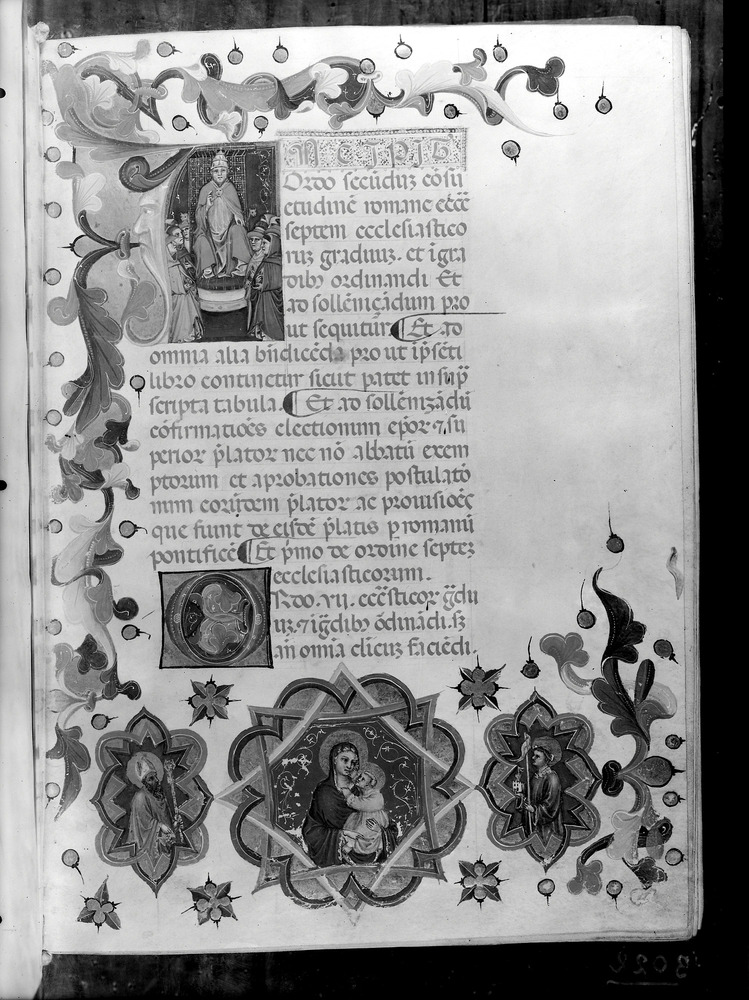 INCIPIT
Ordo secūduz cōsu
etudinē romane eccē
septem ecclesiastico
ruz graduuz. et īgra
dibꝰ ordinandi Et
ad sollēnizādum pro
ut sequitur ¶ Et ad
omnia alia bn̄dicēda prout ip̄seti
libro continetur sicut patet in sup̄
scripta tabula. ¶ Et ad sollēnizādū
cōfirmatiōēs electionum ep̄or ⁊ su
perior p̄lator nec nō abbatū exem
ptorum et aprobationes postulatō
num eorūdem p̄lator ac prouisiōēs
que fiunt de eisdē p̄latis p romanū
pontificē ¶ Et p̄mo de ordine septez
ecclesiasticorum.
ORdo. vii. eccc̄sticor ḡdu
uz. ⁊ īḡdibꝰ ōdinādi. sz
añ omnia cl̄icuz faciēdi.
3022